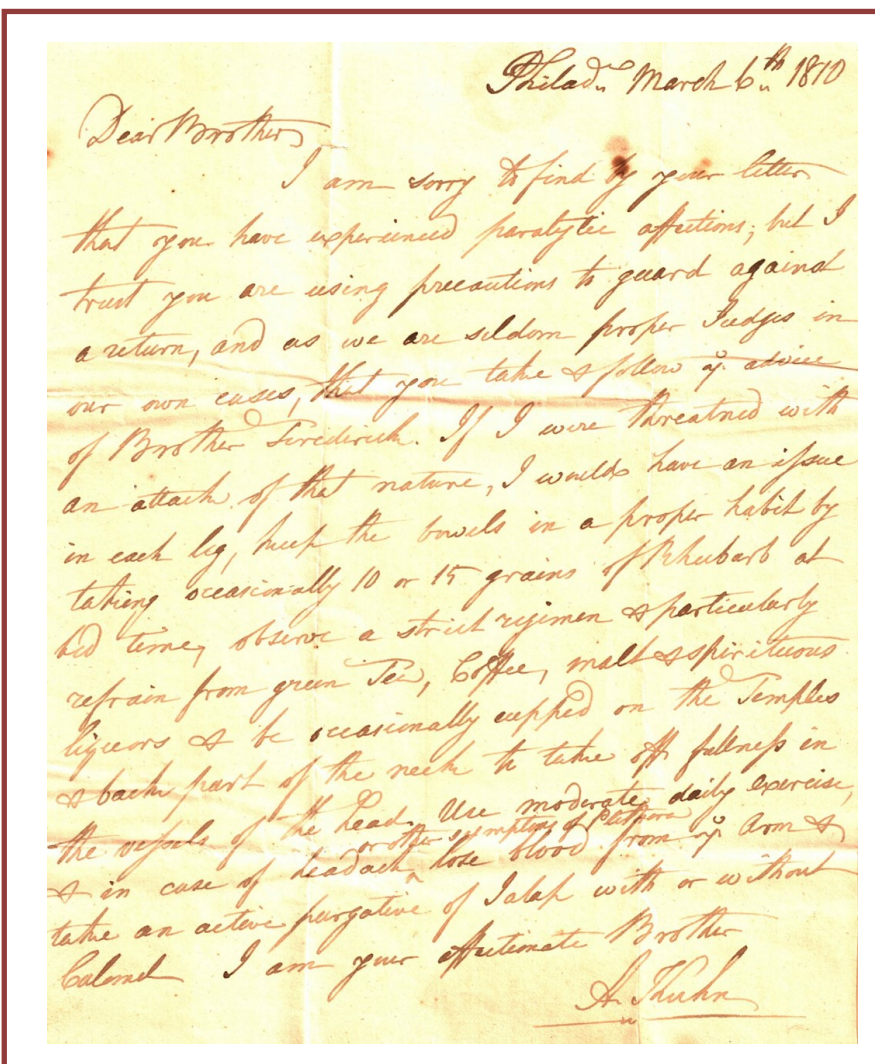 Philadª March 6th 1810
Dear Brother
I am sorry to find by your letter
that you have experienced paralytic affections; but I
trust you are using precautions to guard against
a return, and as we are seldom proper Judges in
our own cases, that you take & follow yr advice
of Brother Frederick. If I were threatned with
an attack of that nature, I would have an issue
in each leg, keep the bowels in a proper habit by
taking occasionally 10 or 15 grains of Rhubarb at
bed time, observe a strict regimen & particularly
refrain from green Tea, Coffee, malt & spirituous
liquors & be occasionally cupped on the Temples
& back part of the neck to take off fullness in
the vessels of the head. Use moderate daily exercise,
or other symptoms of Plethora
& in case of headach ^ lose blood from yr arm &
take an active purgative of Jalap with or without
Calomel I am your affectionate Brother
A. Kuhn